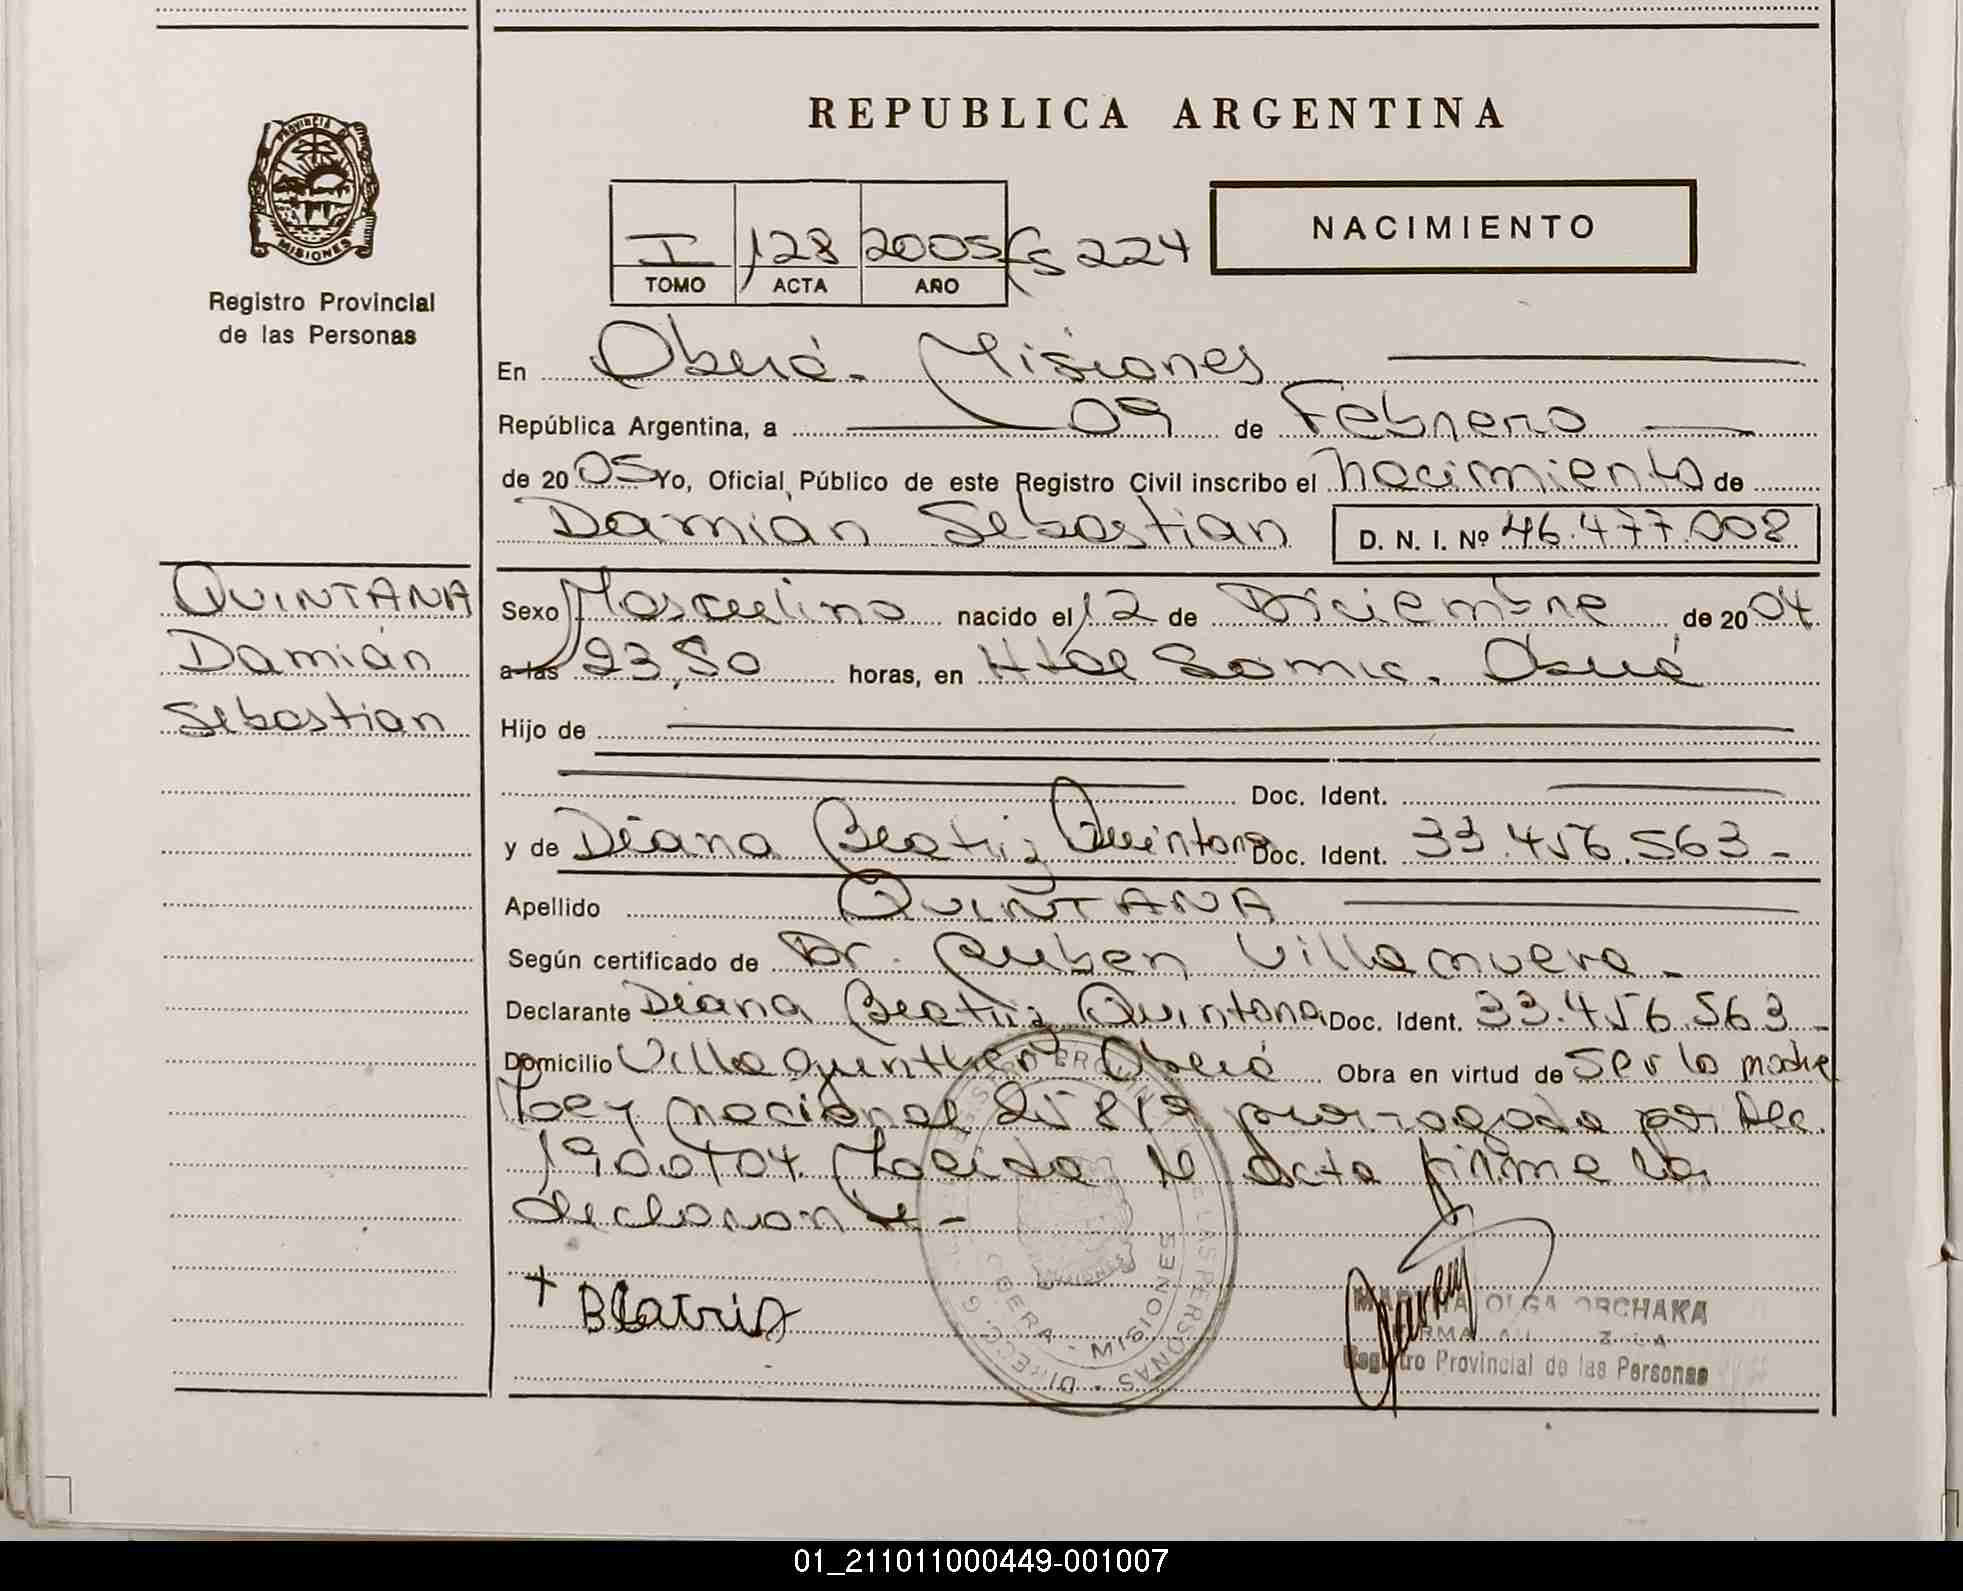 REPUBLICA ARGENTINA
PROVINCIA DE
MISIONES
Registro Provincial
de las Personas
I 128 2005 fs 224
TOMO ACTA AÑO
NACIMIENTO
En Oberá. Misiones
República Argentina, a 09 de Febrero
de 2005 Yo, Oficial Público de este Registro Civil inscribo el Nacimiento de
Damián Sebastian D. N. I. Nº 46.477.008
QUINTANA
Damián
Sebastian
Sexo Masculino nacido el 12 de Diciembre de 2004
a las 23,50 horas, en Htal Samic. Oberá
Hijo de
Doc. Ident.
y de Diana Beatriz Quintana Doc. Ident. 33.456.563-
Apellido QUINTANA
Según certificado de Dr. Ruben Villanueva-
Declarante Diana Beatriz Quintana Doc. Ident. 33.456.563-
Domicilio Villa Gunther Oberá Obra en virtud de ser la madre
Ley nacional 25819 prorrogada por Dec.
1900/04. Leida el acta firma la
declarante-
+ Beatriz
OBERA - MISIONES
OLGA ORCHAKA
Registro Provincial de las Personas
01_211011000449-001007